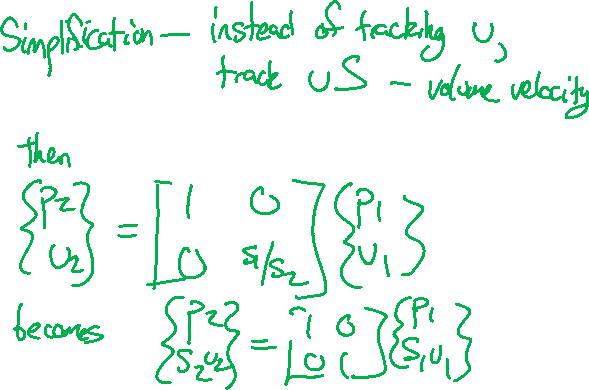 Simplification — instead of tracking U,
track US — volume velocity
then
{P2 U2} = [1 0 0 S1/S2] {P1 U1}
becomes {P2 S2U2} = [1 0 0 1] {P1 S1U1}